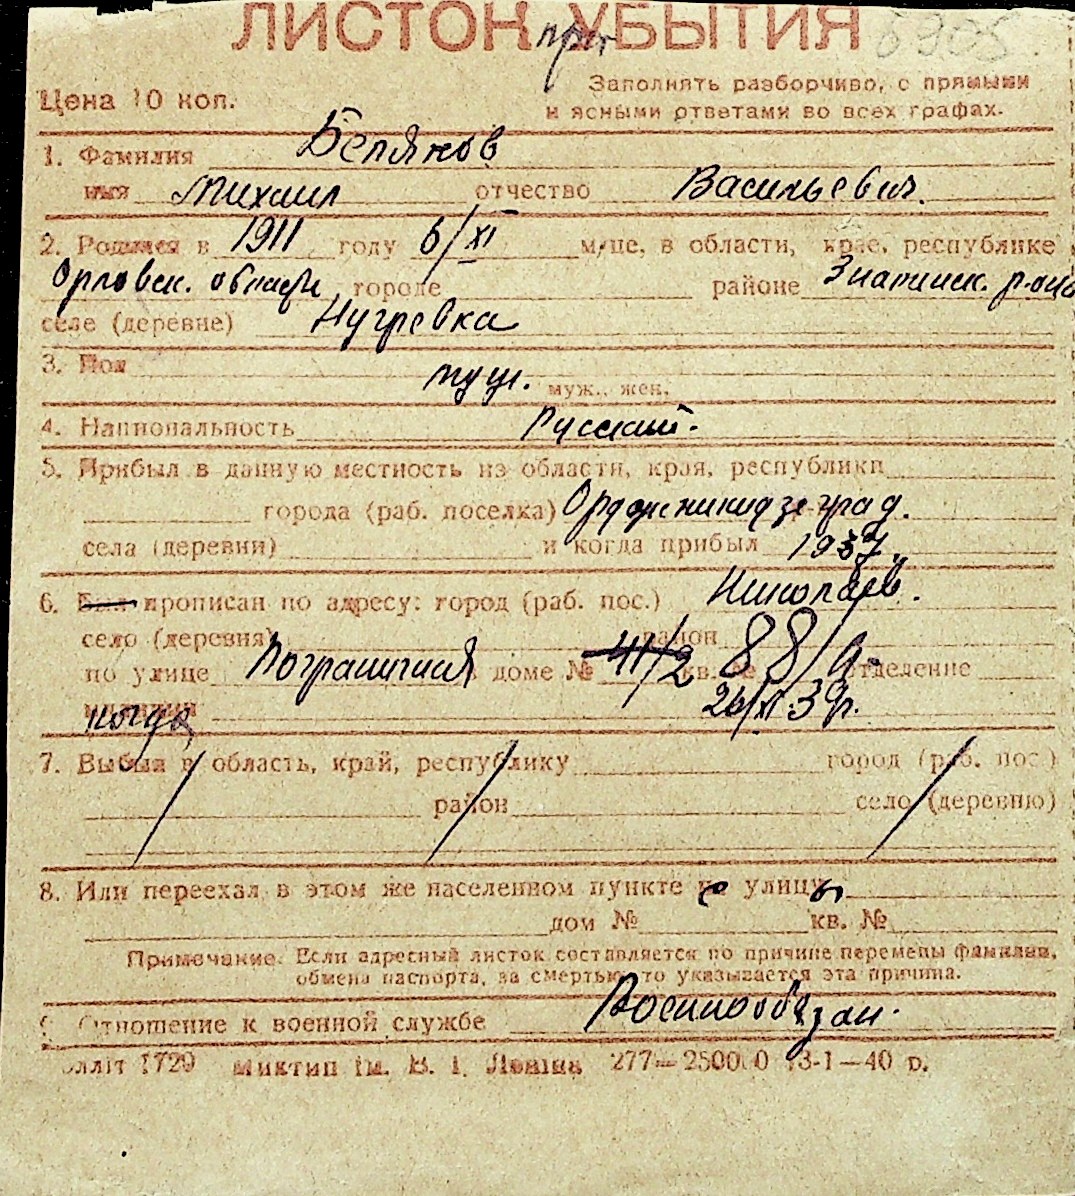 ЛИСТОК при УБЫТИЯ 8905
Цена 10 коп.
Заполнять разборчиво, с прямыми
и ясными ответами во всех графах.
1. Фамилия Беляков
имя Михаил отчество Васильевич.
2. Родился в 1911 году 6/XI м-це, в области, крае, республике
Орловск. области городе районе р-она
селе (деревне) Нугревка
3. Пол муш. муж., жен.
4. Национальность Русский.
5. Прибыл в данную местность из области, края, республики
города (раб. поселка) Орджоникидзеград.
села (деревни) и когда прибыл 1937.
6. Был прописан по адресу: город (раб. пос.) Николаев.
село (деревня) район
по улице Пограничная доме № 41/2 кв. № 88/а отделение
когда 26/XI-39г.
7. Выбыл в область, край, республику город (раб. пос.)
район село (деревню)
8. Или переехал в этом же населенном пункте с улицы
дом № кв. №
Примечание. Если адресный листок составляется по причине перемены фамилии,
обмена паспорта, за смертью, то указывается эта причина.
9. Отношение к военной службе Военнообязан.
1729 им. В. І. Леніна 277—250000 13-1—40 р.